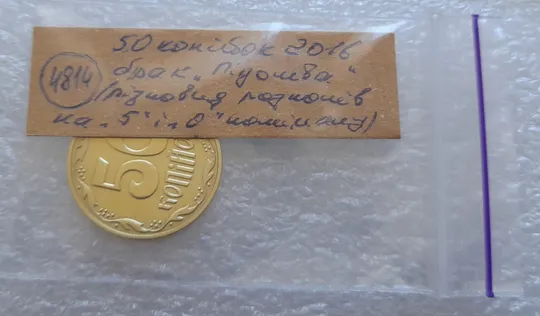 50 копійок 2016
4814
брак "Підкова"
(різновид подконів
на "5" і "0" номіналу)
50
КОПІЙОК